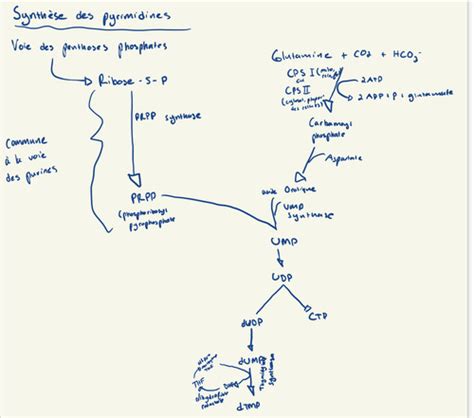 Synthèse des pyrimidines
Voie des penthoses phosphates
Ribose-5-P
PRPP synthase
commune
à la voie
des purines
PRPP
(phosphoribosyl
pyrophosphate
Glutamine + CO2 + HCO3-
CPS I
ou
CPS II
2 ATP
2 ADP + P + glutamate
Carbamoyl
phosphate
Aspartate
acide Orotique
UMP
synthase
UMP
UDP
dUDP
CTP
dUMP
THF
DHF
dihydrofolate
dTMP